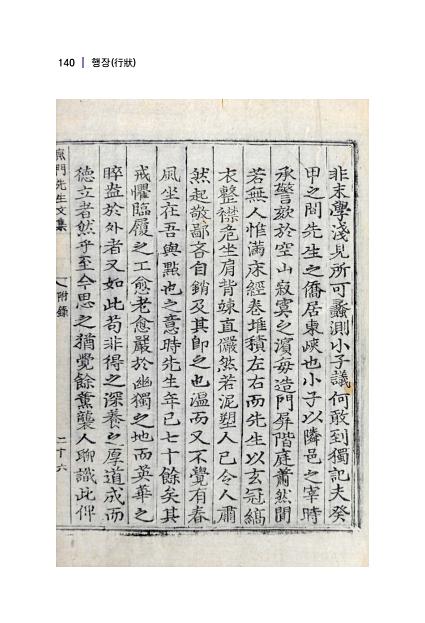 140 | 행장(行狀)
非末學淺見所可蠡測小子議何敢到獨記夫癸
甲之間先生之僑居東峽也小子以隣邑之宰時
承警欬於空山寂寞之濱每造門屛階庭蕭然閴
若無人惟滿床經卷堆積左右而先生以玄冠縞
衣整襟危坐肩背竦直儼然若泥塑人已令人肅
然起敬鄙吝自銷及其卽之也溫而又不覺有春
風坐在吾與點也之意時先生年已七十餘矣其
戒懼臨履之工愈老愈嚴於幽獨之地而英華之
睟盎於外者又如此苟非得之深養之厚道成而
德立者然乎至今思之猶覺餘薰襲人聊識此俾
門先生文集
附錄
二十六